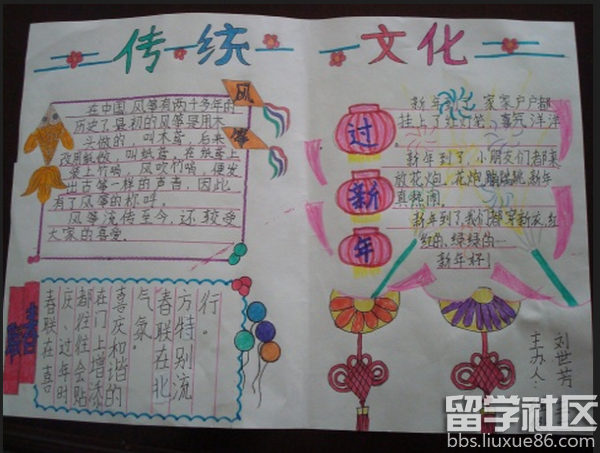 传统文化
风筝
在中国,风筝有两千多年的
历史了。最初的风筝是用木
头做的,叫木鸢,后来
改用纸做,叫纸鸢,在纸鸢上
装上竹哨,风吹竹哨,便发
出古筝一样的声音,因此
有了风筝的称呼。
风筝流传至今,还受
大家的喜爱。
春联在喜
庆、过年时
都往往会贴
在门上增添
喜庆和谐的
气氛。
春联在北
方特别流
行。
过新年
新年到了,家家户户都
挂上了红灯笼,喜气洋洋。
新年到了,小朋友们都来
放花炮,花炮蹦蹦跳,新年
真热闹。
新年到了我们都穿新衣,红
红的、绿绿的…
新年好!
主办人:
刘世芳
留学社区
bbs.liuxue86.com